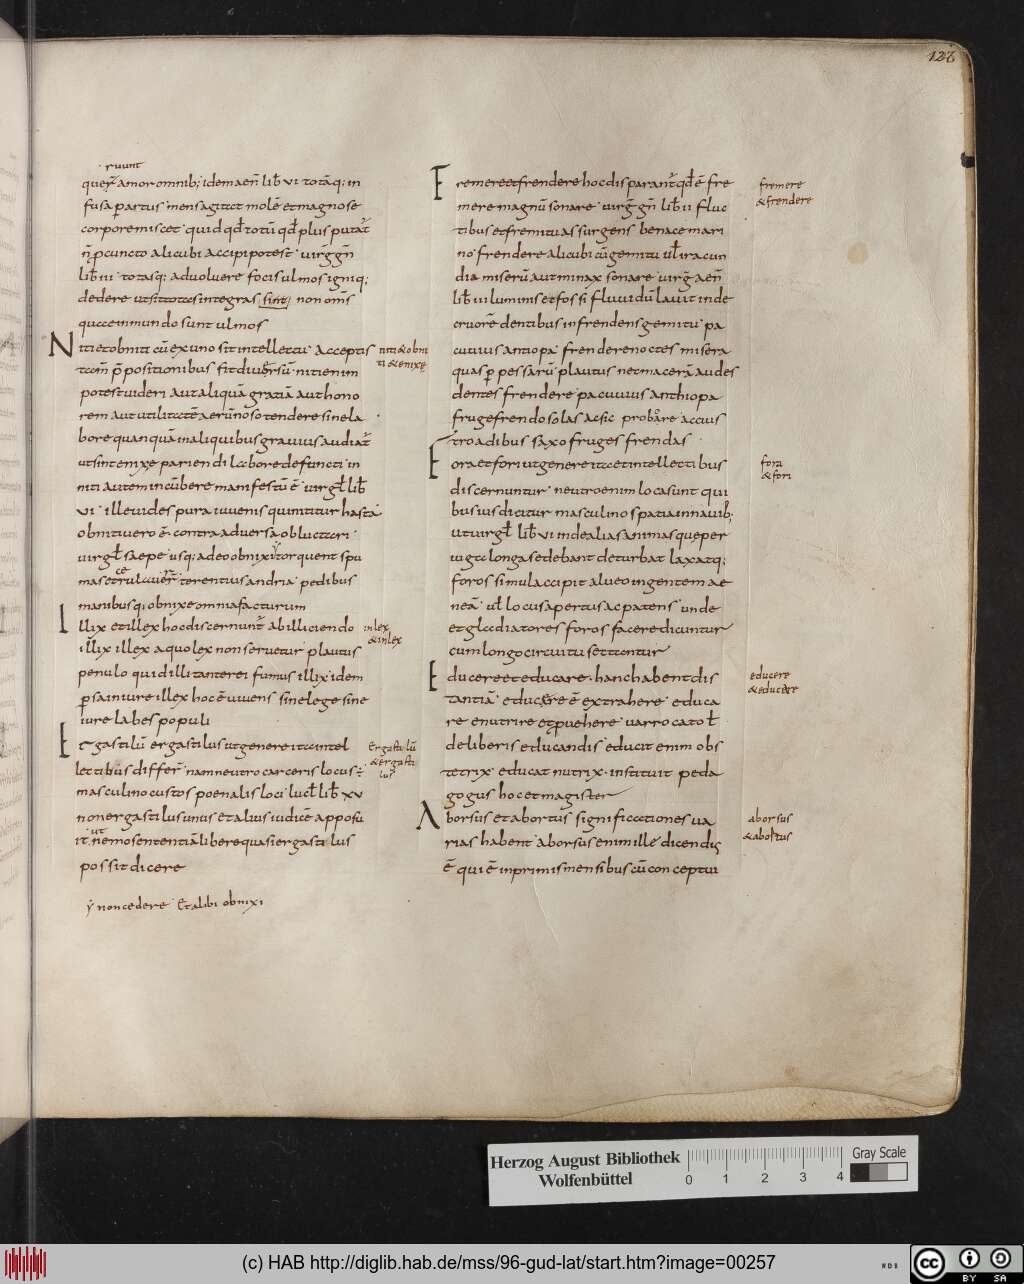 128
ruunt
quer̄ amor omnib; idem aeñ lib̄ vi totāq; in
fusa partus mens agitat molē et magno se
corpore miscet quid qđ totū qđ plus putat̄
n̄ p cuncto alicubi accipi potest virg̃ gñ
lib̄ iii totasq; advoluere focis ulmos igniq;
dedere ut sit totas integras sine non om̄s
quae in mundo sunt ulmos
Niti et obniti cū ex uno sit intellectu acceptis
tam̄ p̄positionibus fit diversū niti enim
potest videri aut aliquā gratiā aut hono
rem aut utilitatē aerūnoso tendere sine la
bore quanquā in aliquibus gravius audiat̄
ut sint enixe pariendi labore defuncti in
niti autem incūbere manifestū ē virgł lib̄
vi ille vides pura iuvenis qui nititur hasta
obniti vero ē contra adversa obluctari
virgł saepe usq; adeo obnixi torquent spu
mas et rul cē ver̄ terentius andria pedibus
manibusq; obnixe omnia facturum
Illix et illex hoc discernunt̄ ab illiciendo
illix illex a quo lex non servetur plautus
penulo quid illi tanterei fumus illix idem
persa in iure illex hoc ē vivens sine lege sine
iure labes populi
Ergastilū ergastilus ut genere ita intel
lectibus differ̄ nam neutro carceris locus;
masculino custos poenalis loci lucł lib̄ xv
non ergastilus unus et alius iudicē apposu
it ut nemo sententiā libere quasi ergastilus
possit dicere
ẏ non cedere Et alibi obnixi
niti & obni
ti & enixę
inlex
& inlex
Ergastilū
& ergasti
lus
Fremere et frendere hoc disparant̄ qđ ē fre
mere magnū sonare virg̃ gñ lib̄ ii fluc
tibus et fremitu assurgens benace mari
no frendere alicubi cū gemitu uł iracun
dia miserū aut minax sonare virg̃ aeñ
lib̄ iii luminis effossi fluvidū lavit inde
cruorē dentibus infrendens gemitu pa
cuuius antiopa frendere noctes misera
quas perpessa sū plautus nec macerā audes
dentes frendere pacuuius anthiopa
fruge frendo solas ac sic probare accius
troadibus saxo fruges frendas
Fora et fori ut genere ita et intellectibus
discernuntur neutro enim loca sunt qui
bus ius dicitur masculino spatia in navib;
ut virgł lib̄ vi inde alias animas que per
iuga longa sedebant deturbat laxatq;
foros simul accipit alveo ingentem ae
neā uł locus apertus ac patens unde
et gladiatores foros facere dicuntur
cum longo circuitu sectantur
Educere et educare hanc habent dis
tantiā educere ē extrahere educa
re enutrire et provehere varro catoł
de liberis educandis educit enim obs
tetrix educat nutrix instituit peda
gogus hoc et magister
Aborsus et abortus significationes va
rias habent aborsus enim ille dicendus
ē qui ē in primis mensibus cū conceptui
fremere
& frendere
fora
& fori
educere
& educere
aborsus
& abortus
Herzog August Bibliothek
Wolfenbüttel
0 1 2 3 4
Gray Scale
(c) HAB http://diglib.hab.de/mss/96-gud-lat/start.htm?image=00257
WDB
cc BY SA